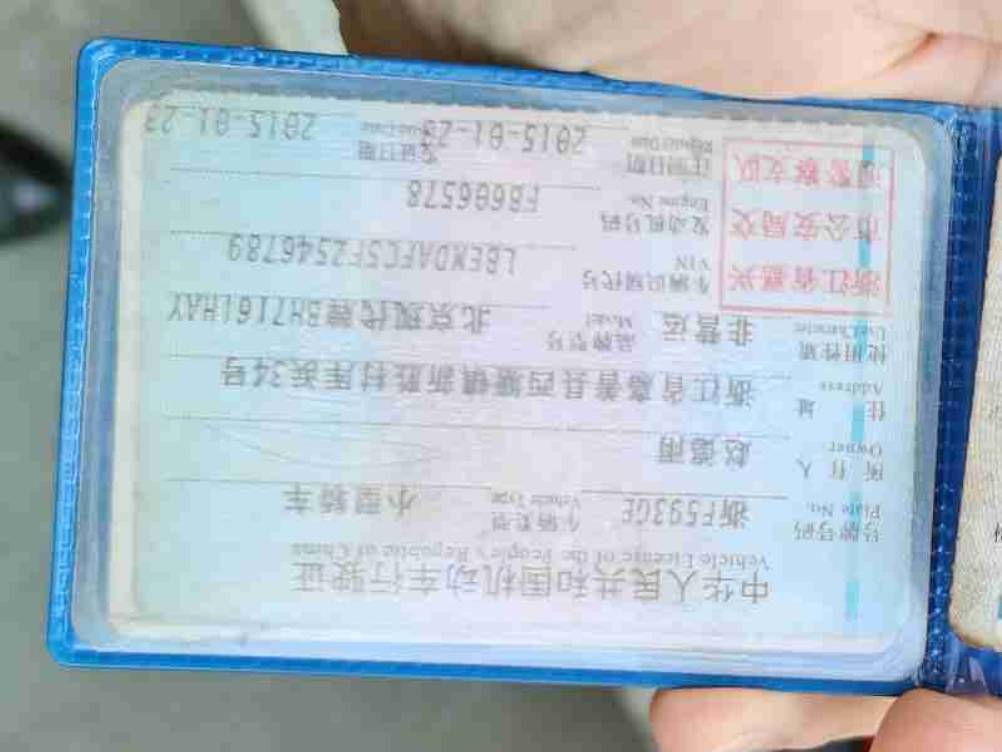 中华人民共和国机动车行驶证
Vehicle License of the People's Republic of China
号牌号码 浙F593GE 车辆类型 小型轿车
Plate No. Vehicle Type
所有人 赵德雨
Owner
住址 浙江省嘉善县西塘镇新胜村库浜34号
Address
使用性质 非营运 品牌型号 北京现代牌BH7161HAY
Use Character Model
浙江省嘉兴
市公安局交
通警察支队
车辆识别代号 LBEMDAFC5FZ546789
VIN
发动机号码 FB606578
Engine No.
注册日期 2015-01-23 发证日期 2015-01-23
Register Date Issue Date